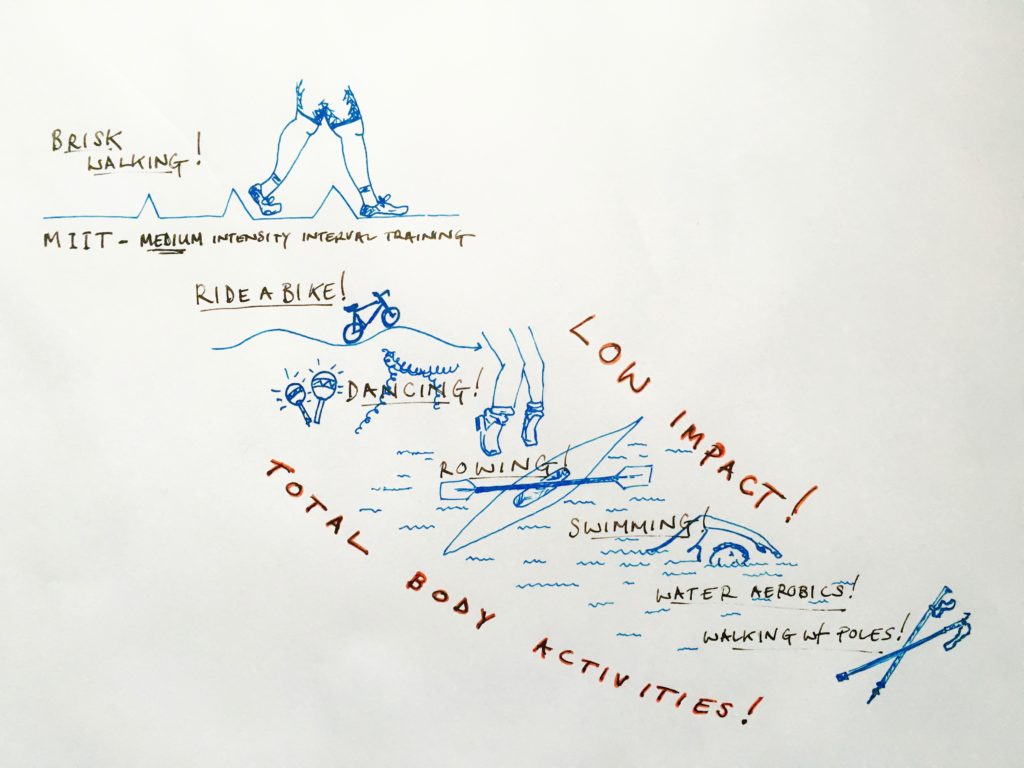 BRISK
WALKING!
MIIT - MEDIUM INTENSITY INTERVAL TRAINING
RIDE A BIKE!
DANCING!
LOW IMPACT!
ROWING!
SWIMMING!
WATER AEROBICS!
WALKING W/ POLES!
TOTAL BODY ACTIVITIES!